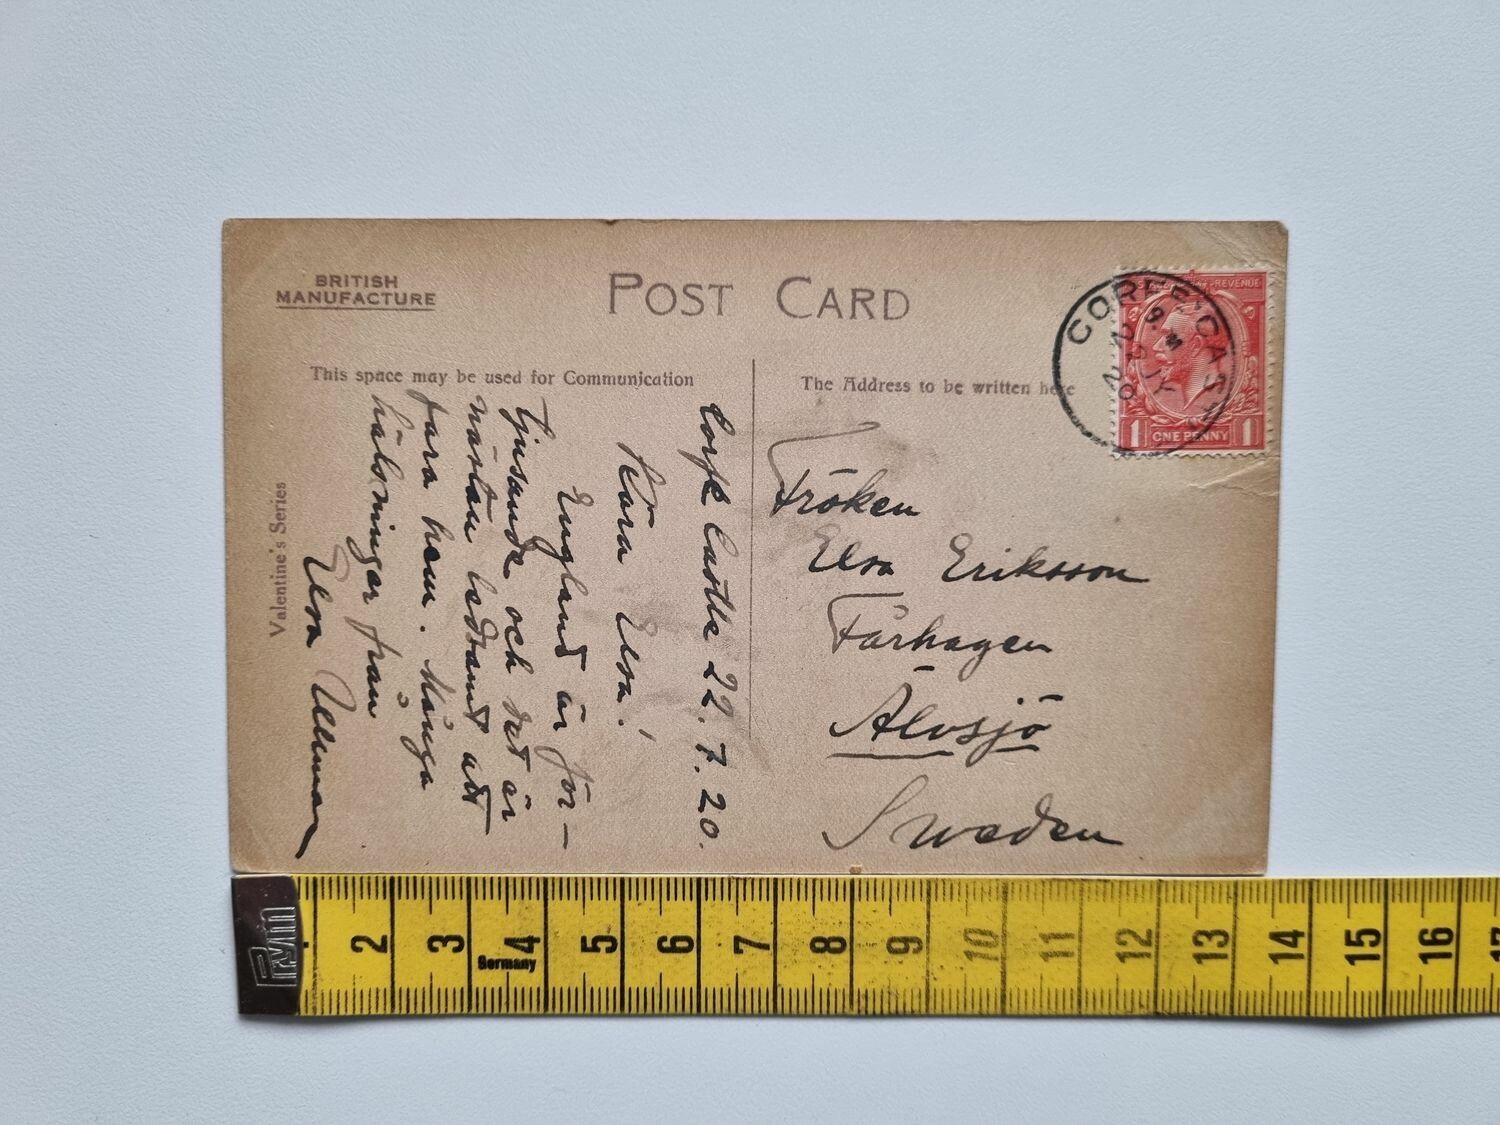 BRITISH
MANUFACTURE
POST CARD
This space may be used for Communication
The Address to be written here
Valentine's Series
Corfe Castle 22.7.20.
Kära Elsa!
England är för-
tjusande och det är
nästan ledsamt att
fara hem. Många
hälsningar från
Elsa Ullman
Fröken
Elsa Eriksson
Fårhagen
Älvsjö
Sweden
CORFE-CASTLE
22 JY
20
REVENUE
1 ONE PENNY 1
Prym
2 3 4 5 6 7 8 9 10 11 12 13 14 15 16 17
Germany